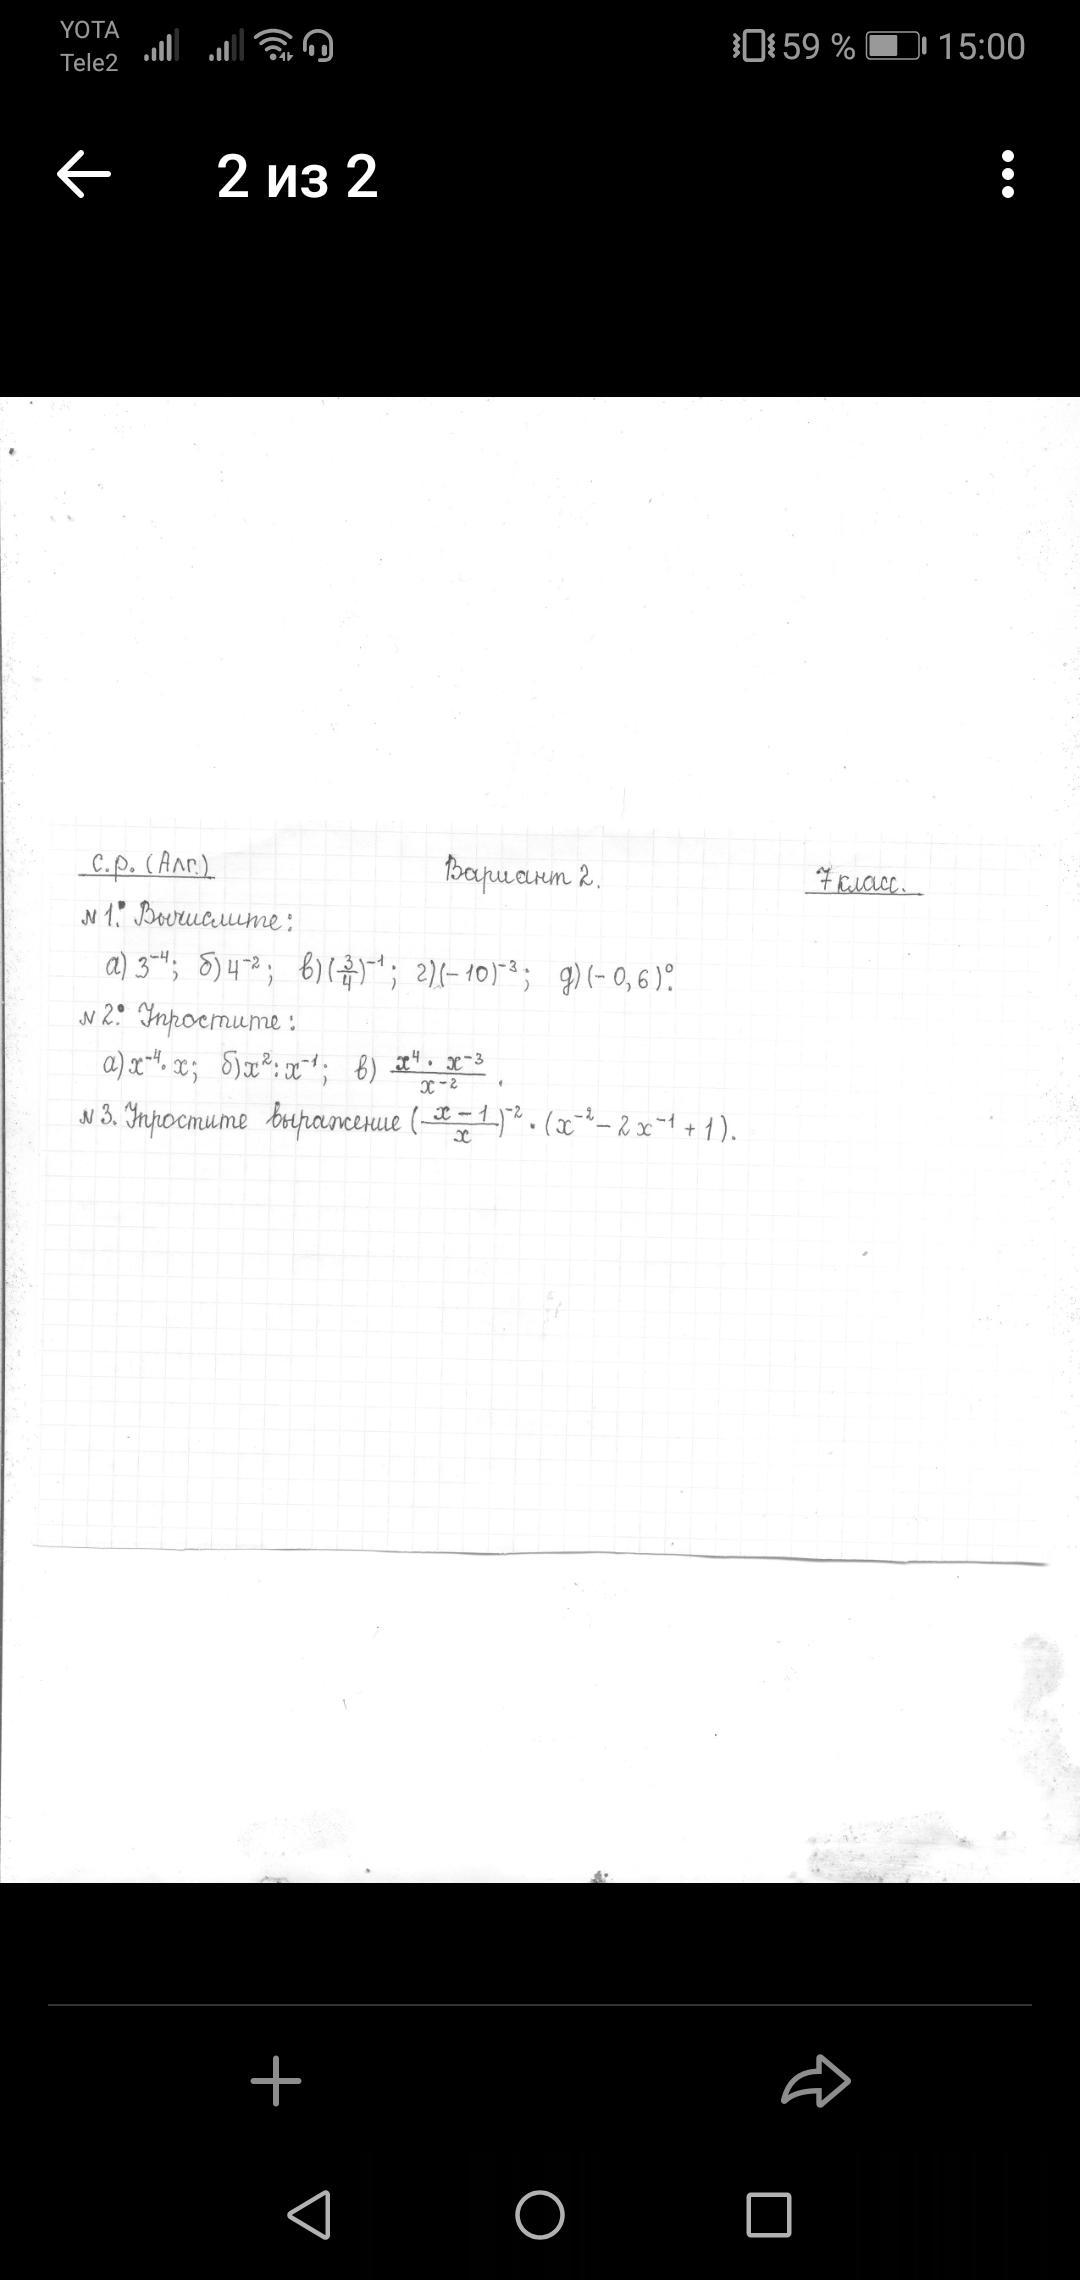 YOTA
Tele2
59 %
15:00
2 из 2
С.р. (Алг.)
Вариант 2.
7 класс.
№1.° Вычислите:
а) 3⁻⁴; б) 4⁻²; в) (3/4)⁻¹; г) (-10)⁻³; д) (-0,6)⁰.
№2.° Упростите:
а) x⁻⁴·x; б) x²:x⁻¹; в) x⁴·x⁻³/x⁻².
№3. Упростите выражение (x-1/x)⁻²·(x⁻²-2x⁻¹+1).